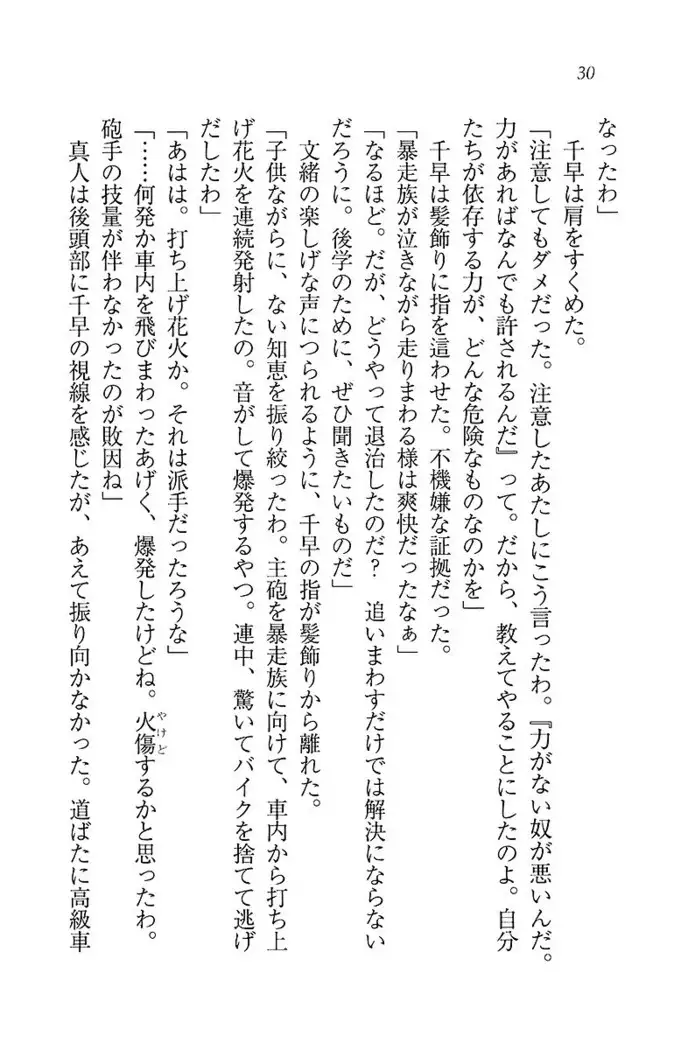 30
なったわ」
　千早は肩をすくめた。
「注意してもダメだった。注意したあたしにこう言ったわ。『力がない奴が悪いんだ。
力があればなんでも許されるんだ』って。だから、教えてやることにしたのよ。自分
たちが依存する力が、どんな危険なものなのかを」
　千早は髪飾りに指を這わせた。不機嫌な証拠だった。
「暴走族が泣きながら走りまわる様は爽快だったなぁ」
「なるほど。だが、どうやって退治したのだ？　追いまわすだけでは解決にならない
だろうに。後学のために、ぜひ聞きたいものだ」
　文緒の楽しげな声につられるように、千早の指が髪飾りから離れた。
「子供ながらに、ない知恵を振り絞ったわ。主砲を暴走族に向けて、車内から打ち上
げ花火を連続発射したの。音がして爆発するやつ。連中、驚いてバイクを捨てて逃げ
だしたわ」
「あはは。打ち上げ花火か。それは派手だったろうな」
「……何発か車内を飛びまわったあげく、爆発したけどね。火傷やけどするかと思ったわ。
砲手の技量が伴わなかったのが敗因ね」
　真人は後頭部に千早の視線を感じたが、あえて振り向かなかった。道ばたに高級車